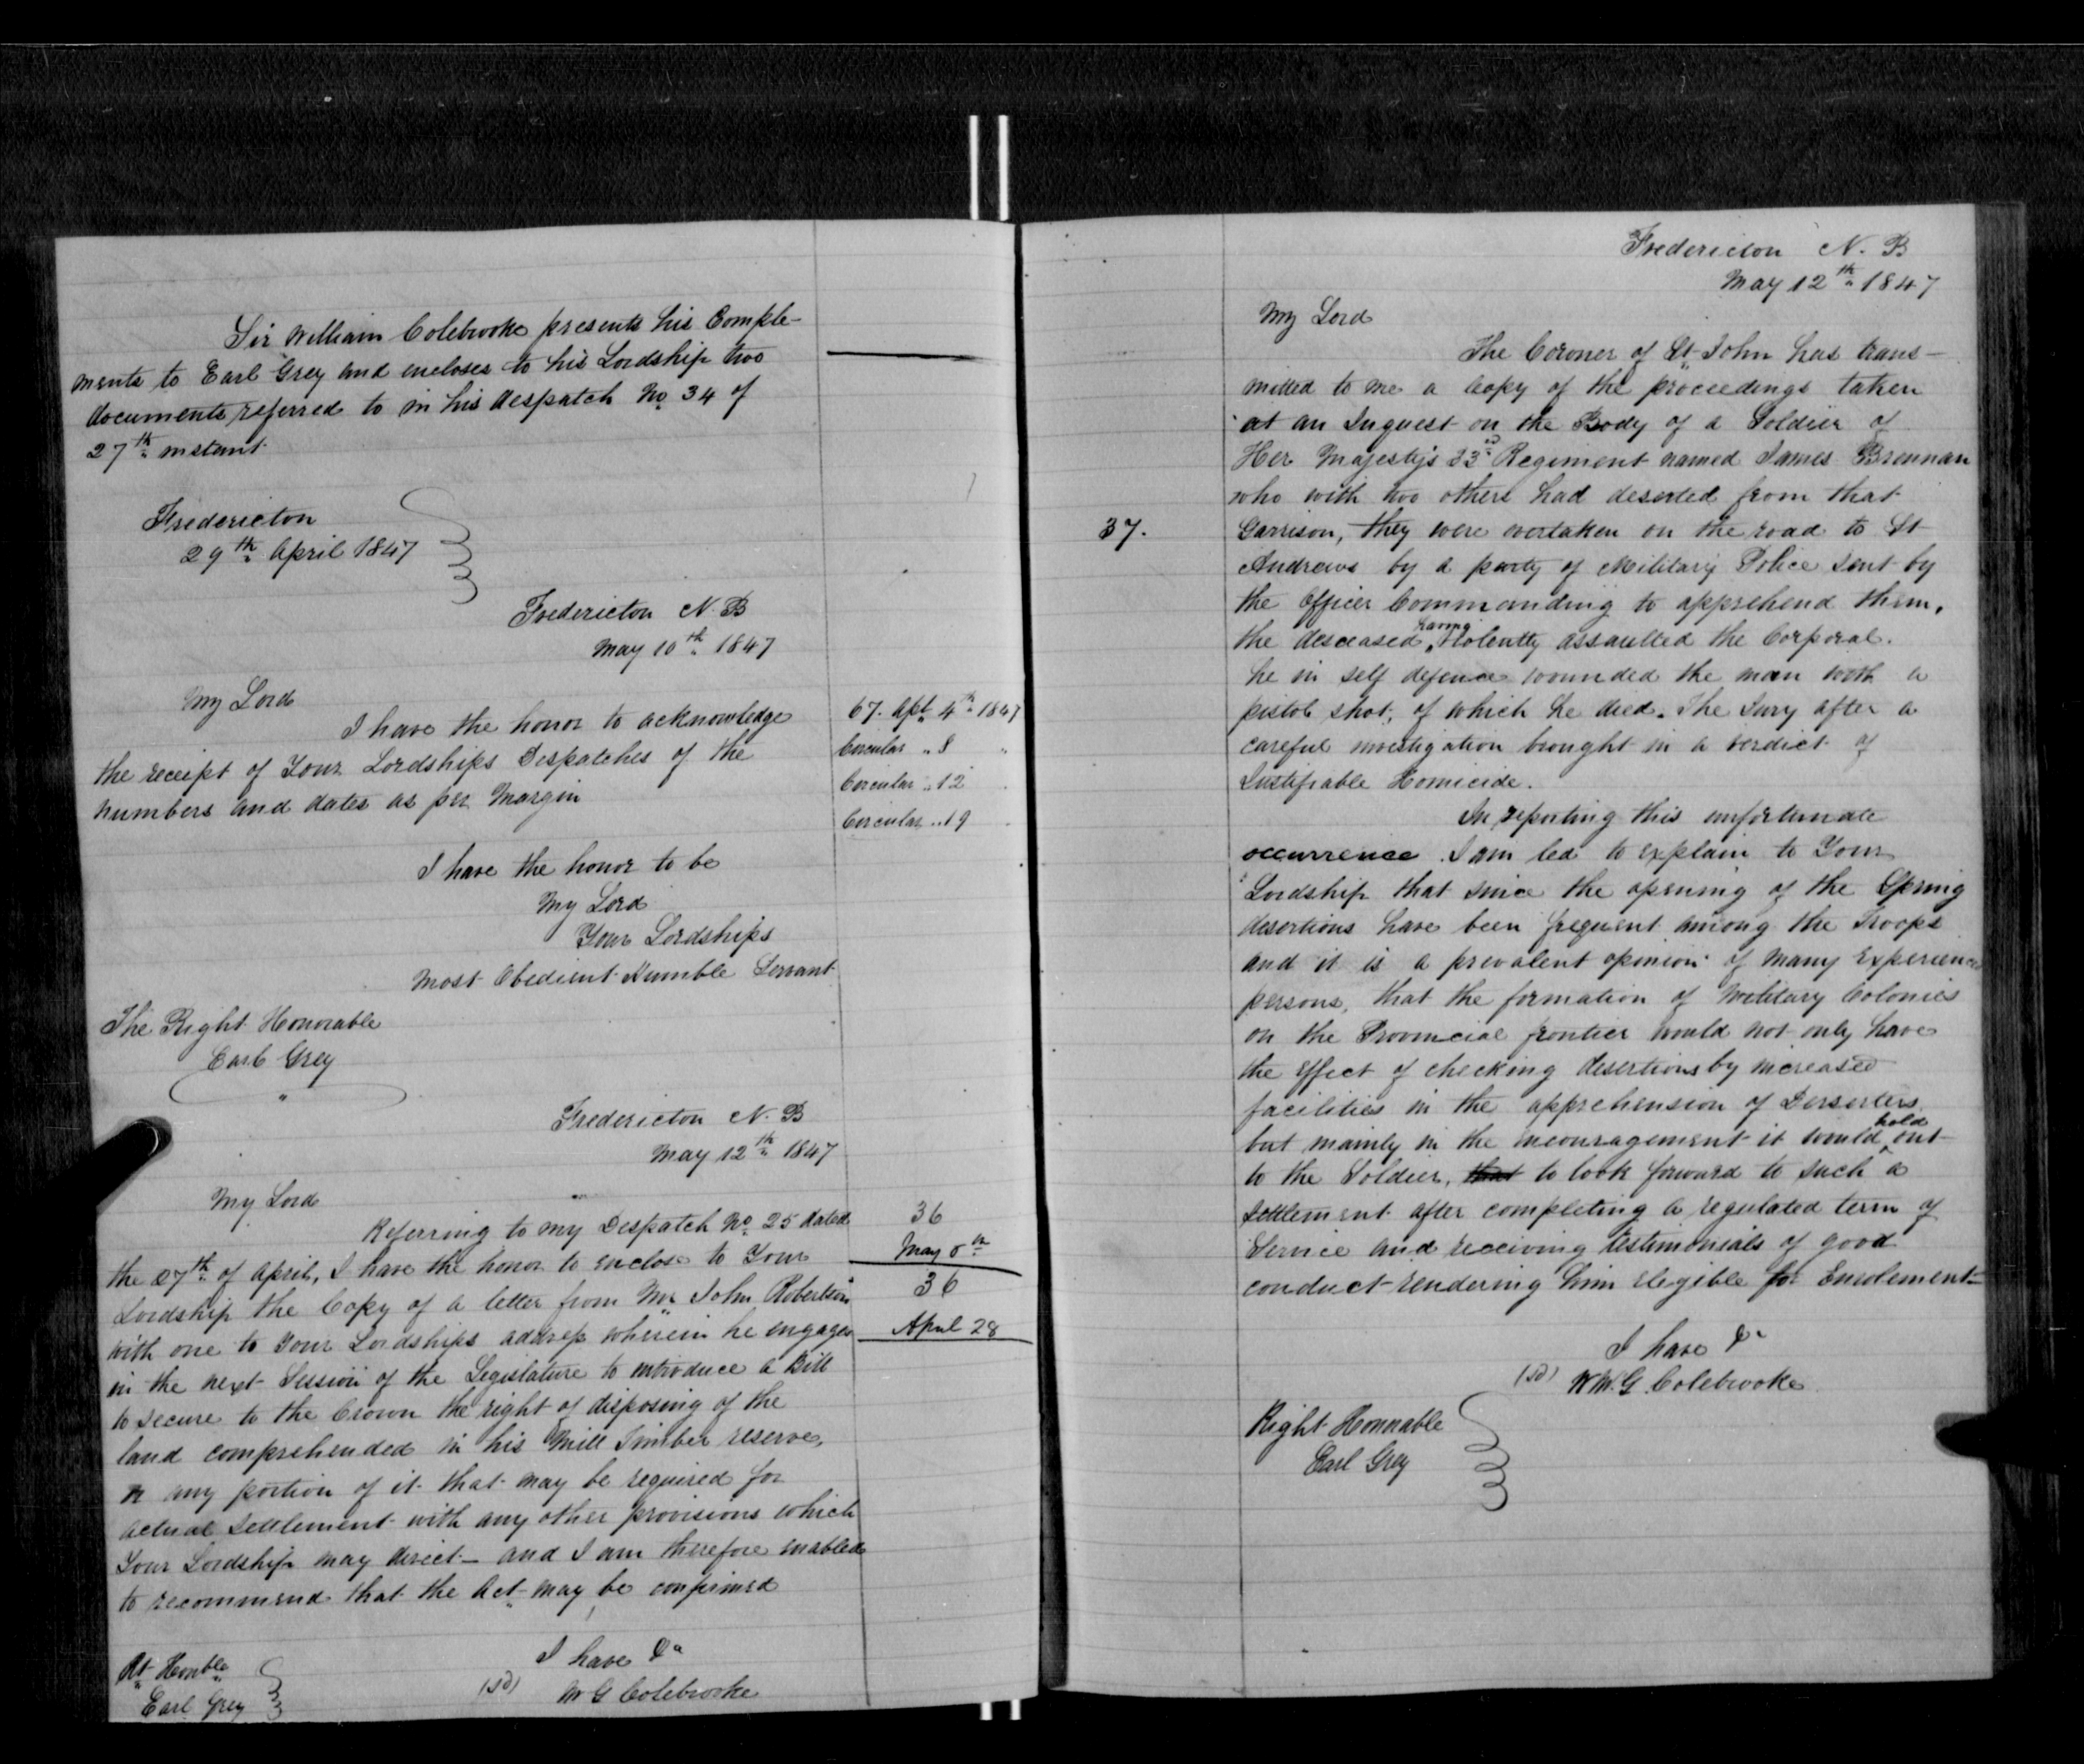 Sir William Colebrooke presents his Comple-
ments to Earl Grey and encloses to his Lordship two
documents referred to in his despatch No. 34 of
27th instant
Fredericton
29th April 1847
Fredericton N. B
May 10th 1847
My Lord
I have the honor to acknowledge
the receipt of Your Lordships Despatches of the
numbers and dates as per Margin
67. Apl 4th 1847
Circular " 8 "
Circular " 12
Circular " 19
I have the honor to be
My Lord
Your Lordships
Most Obedient Humble Servant
The Right Honorable
Earl Grey
Fredericton N. B
May 12th 1847
My Lord
Referring to my Despatch No. 25 dated
the 27th of April, I have the honor to enclose to Your
Lordship the Copy of a letter from Mr John Robertson
with one to Your Lordships address wherein he engages
in the next Session of the Legislature to introduce a Bill
to secure to the Crown the right of disposing of the
land comprehended in his Mill Timber reserve,
or any portion of it that may be required for
actual settlement with any other provisions which
Your Lordship may direct - and I am therefore enabled
to recommend that the Act may be confirmed
36
May
36
April 28
I have &c
(sd) W G Colebrooke
Rt Honble
Earl Grey
Fredericton N. B
May 12th 1847
My Lord
The Coroner of St John has trans-
mitted to me a Copy of the proceedings taken
at an Inquest on the Body of a Soldier of
Her Majesty's 33d Regiment named James Brennan
who with two others had deserted from that
37.
Garrison, they were overtaken on the road to St
Andrews by a party of Military Police sent by
the Officer Commanding to apprehend them,
the desceased having violently assaulted the Corporal.
he in self defence wounded the man with a
pistol shot, of which he died. The Jury after a
careful investigation brought in a verdict of
Justifiable Homicide.
In reporting this unfortunate
occurrence I am led to explain to Your
Lordship that since the opening of the Spring
desertions have been frequent among the Troops
and it is a prevalent opinion of many Experienced
persons, that the formation of Military Colonies
on the Provincial frontier would not only have
the effect of checking desertions by increased
facilities in the apprehension of Derserters
but mainly in the incouragement it would hold out
to the Soldier, that to look forward to such a
Settlement after completing a regulated term of
Service and receiving testimonials of good
conduct rendering him elegible for Enrolement-
I have &c
(sd) Wm. G. Colebrooke
Right Honorable
Earl Grey